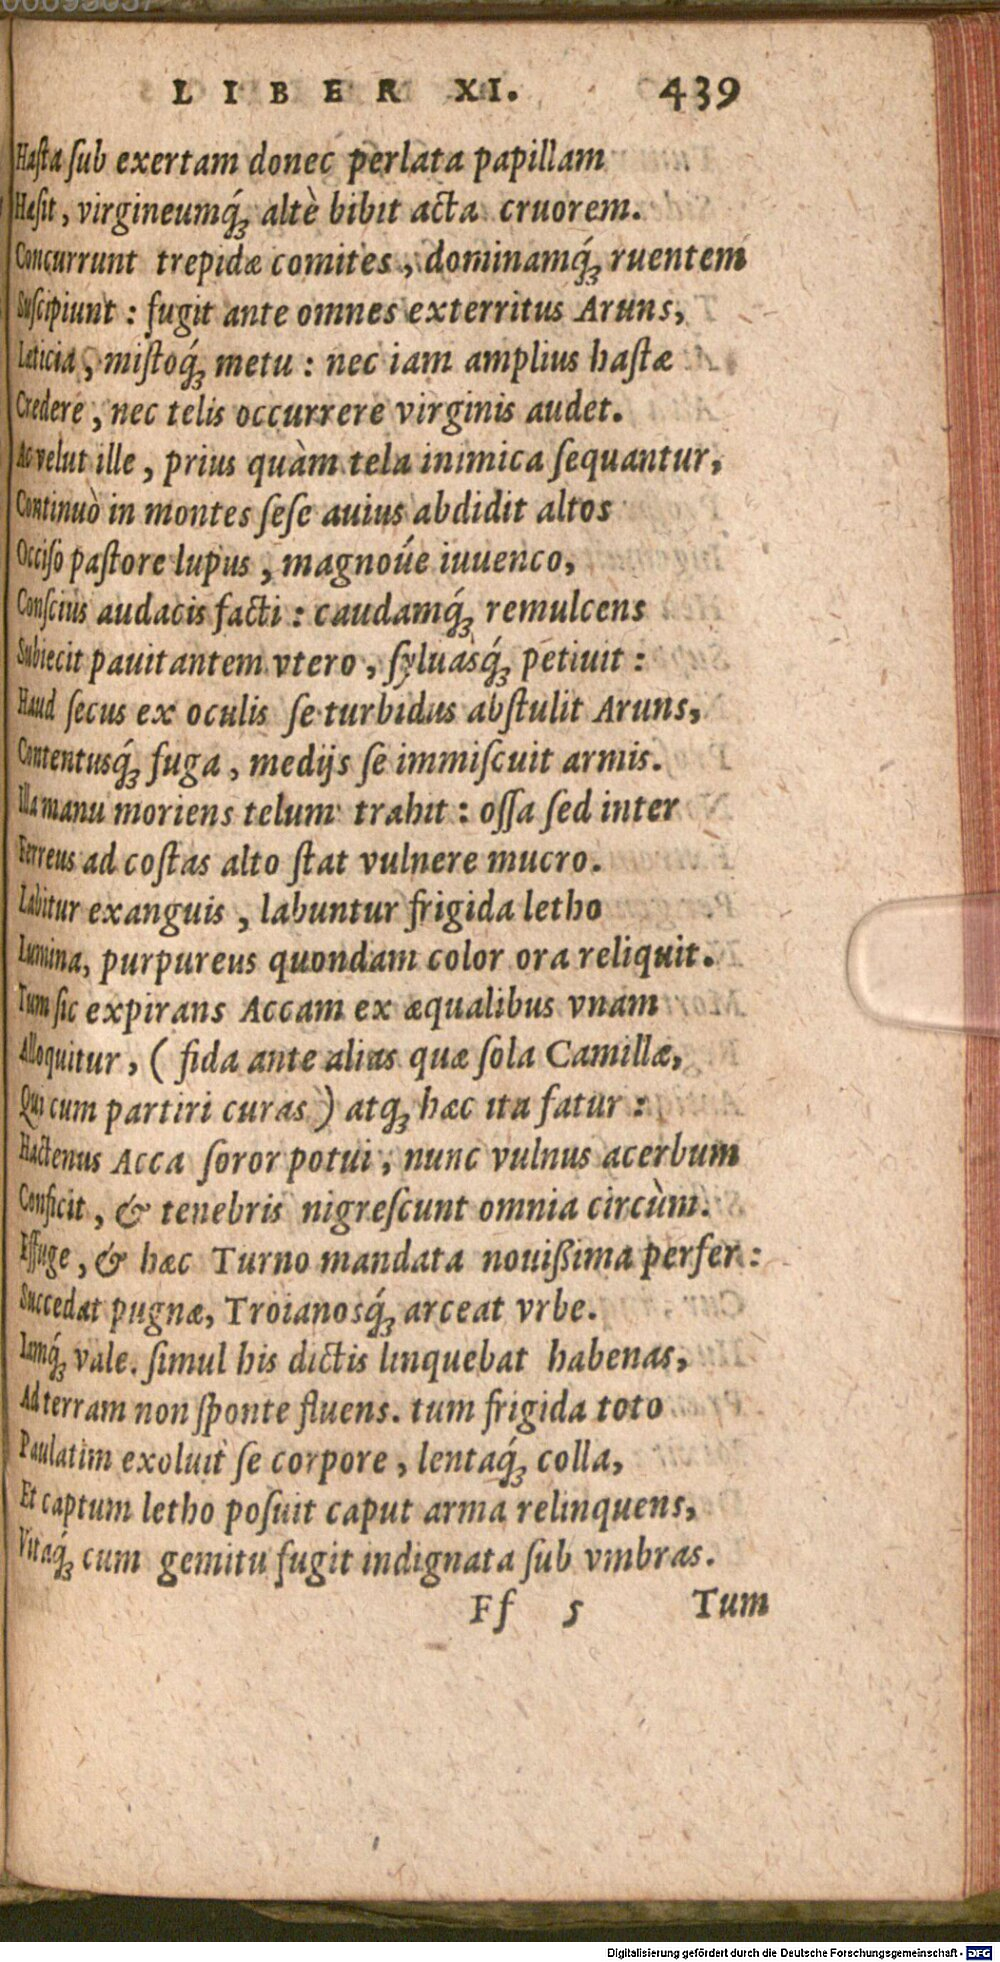 LIBER XI. 439
Hasta sub exertam donec perlata papillam
Hæsit, virgineumq́; altè bibit acta cruorem.
Concurrunt trepidæ comites, dominamq́; ruentem
Suscipiunt: fugit ante omnes exterritus Aruns,
Læticia, mistoq́; metu: nec iam amplius hastæ
Credere, nec telis occurrere virginis audet.
Ac velut ille, prius quàm tela inimica sequantur,
Continuò in montes sese auius abdidit altos
Occiso pastore lupus, magnoúe iuuenco,
Conscius audacis facti: caudamq́; remulcens
Subiecit pauitantem vtero, syluasq́; petiuit:
Haud secus ex oculis se turbidus abstulit Aruns,
Contentusq́; fuga, medijs se immiscuit armis.
Illa manu moriens telum trahit: ossa sed inter
Ferreus ad costas alto stat vulnere mucro.
Labitur exanguis, labuntur frigida letho
Lumina, purpureus quondam color ora reliquit.
Tum sic expirans Accam ex æqualibus vnam
Alloquitur, (fida ante alias quæ sola Camillæ,
Qui cum partiri curas) atq; hæc ita fatur:
Hactenus Acca soror potui, nunc vulnus acerbum
Conficit, & tenebris nigrescunt omnia circùm.
Effuge, & hæc Turno mandata nouißima perfer:
Succedat pugnæ, Troianosq́; arceat vrbe.
Iamq́; vale. simul his dictis linquebat habenas,
Ad terram non sponte fluens. tum frigida toto
Paulatim exoluit se corpore, lentaq́; colla,
Et captum letho posuit caput arma relinquens,
Vitaq́; cum gemitu fugit indignata sub vmbras.
Ff 5 Tum
Digitalisierung gefördert durch die Deutsche Forschungsgemeinschaft - DFG